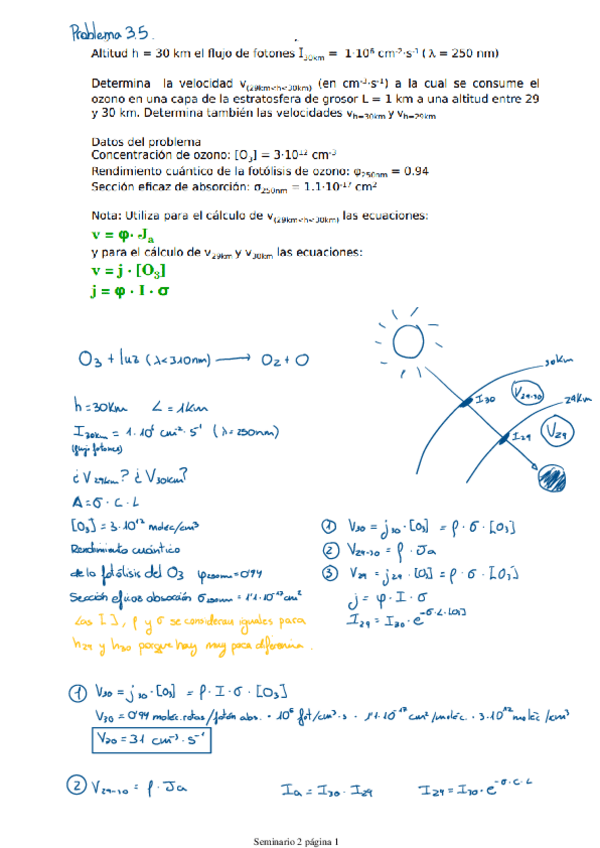 Problema 3.5.
Altitud h = 30 km el flujo de fotones I30km = 1·10⁶ cm⁻²·s⁻¹ ( λ = 250 nm)
Determina la velocidad v(29km<h<30km) (en cm⁻³·s⁻¹) a la cual se consume el
ozono en una capa de la estratosfera de grosor L = 1 km a una altitud entre 29
y 30 km. Determina también las velocidades vh=30km y vh=29km
Datos del problema
Concentración de ozono: [O3] = 3·10¹² cm⁻³
Rendimiento cuántico de la fotólisis de ozono: φ250nm = 0.94
Sección eficaz de absorción: σ250nm = 1.1·10⁻¹⁷ cm²
Nota: Utiliza para el cálculo de v(29km<h<30km) las ecuaciones:
v = φ· Ja
y para el cálculo de v29km y v30km las ecuaciones:
v = j · [O3]
j = φ · I · σ
O3 + luz (λ<310nm) ⟶ O2 + O
30Km
I30
V29-30
29Km
I29
V29
h = 30Km L = 1Km
I30km = 1·10⁶ cm⁻²·s⁻¹ (λ = 250nm)
(flujo fotones)
¿V29km? ¿V30km?
A = σ · C · L
[O3] = 3·10¹² moléc/cm³
Rendimiento cuántico
de la fotólisis del O3 φ250nm = 0'94
Sección eficaz absorción σ250nm = 1'1·10⁻¹⁷ cm²
Las [ ], φ y σ se consideran iguales para
h29 y h30 porque hay muy poca diferencia.
① V30 = j30 · [O3] = φ · σ · [O3]
② V29-30 = φ · Ja
③ V29 = j29 · [O3] = φ · σ · [O3]
j = φ · I · σ
I29 = I30 · e^-σ·L·[O3]
① V30 = j30 · [O3] = φ · I · σ · [O3]
V30 = 0'94 moléc. rotas/fotón abs. · 10⁶ fot/cm²·s · 1'1·10⁻¹⁷ cm²/moléc. · 3·10¹² moléc/cm³
V30 = 31 cm⁻³·s⁻¹
② V29-30 = φ · Ja Ia = I30 · I29 I29 = I30 · e^-σ·C·L
Seminario 2 página 1